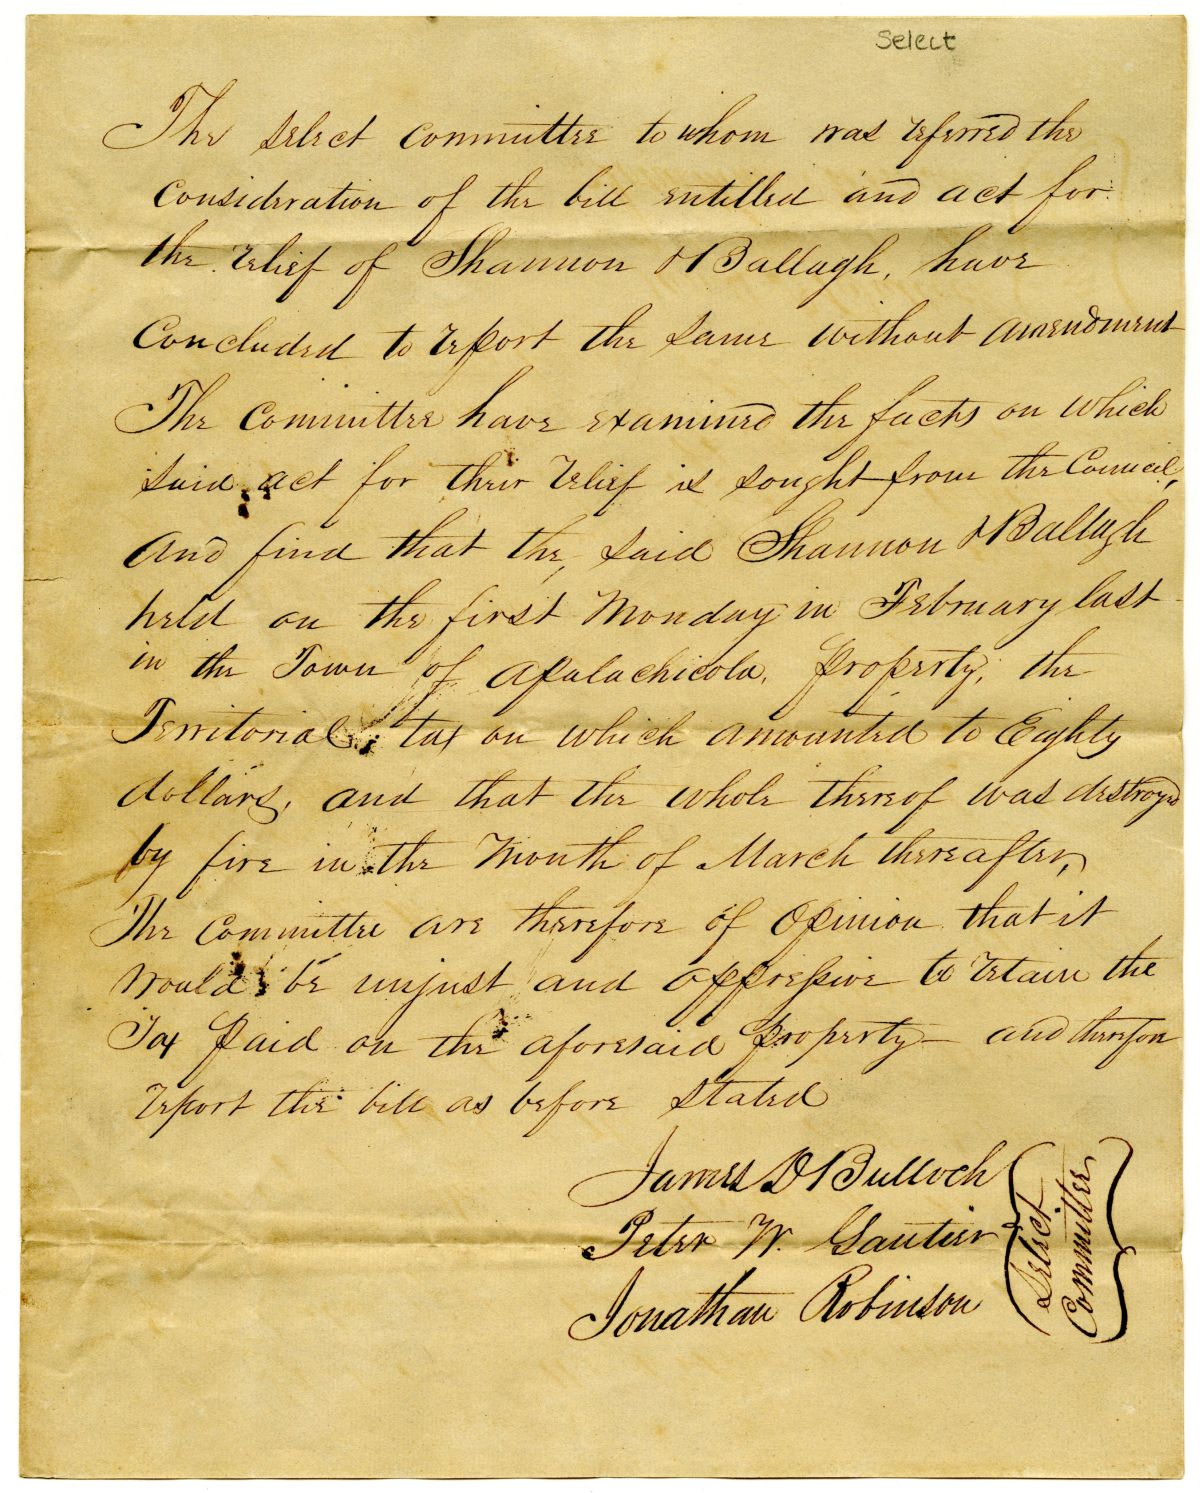 Select
The select committee to whom was referred the
Consideration of the bill entitled and act for
the relief of Shannon & Ballagh, have
Concluded to report the same without amendment
The Committee have examined the facts on which
said act for their relief is sought from the Council,
And find that the, said Shannon & Ballagh
held on the first Monday in February last
in the Town of Apalachicola, property, the
Territorial, tax on which amounted to Eighty
dollars, and that the whole thereof was destroyed
by fire in the Month of March thereafter,
The Committee are therefore of Opinion that it
would be unjust and oppressive to retain the
Tax paid on the aforesaid property – and therefore
report the bill as before stated
James D Bulloch
Peter W. Gautier
Jonathan Robinson
Select
Committee